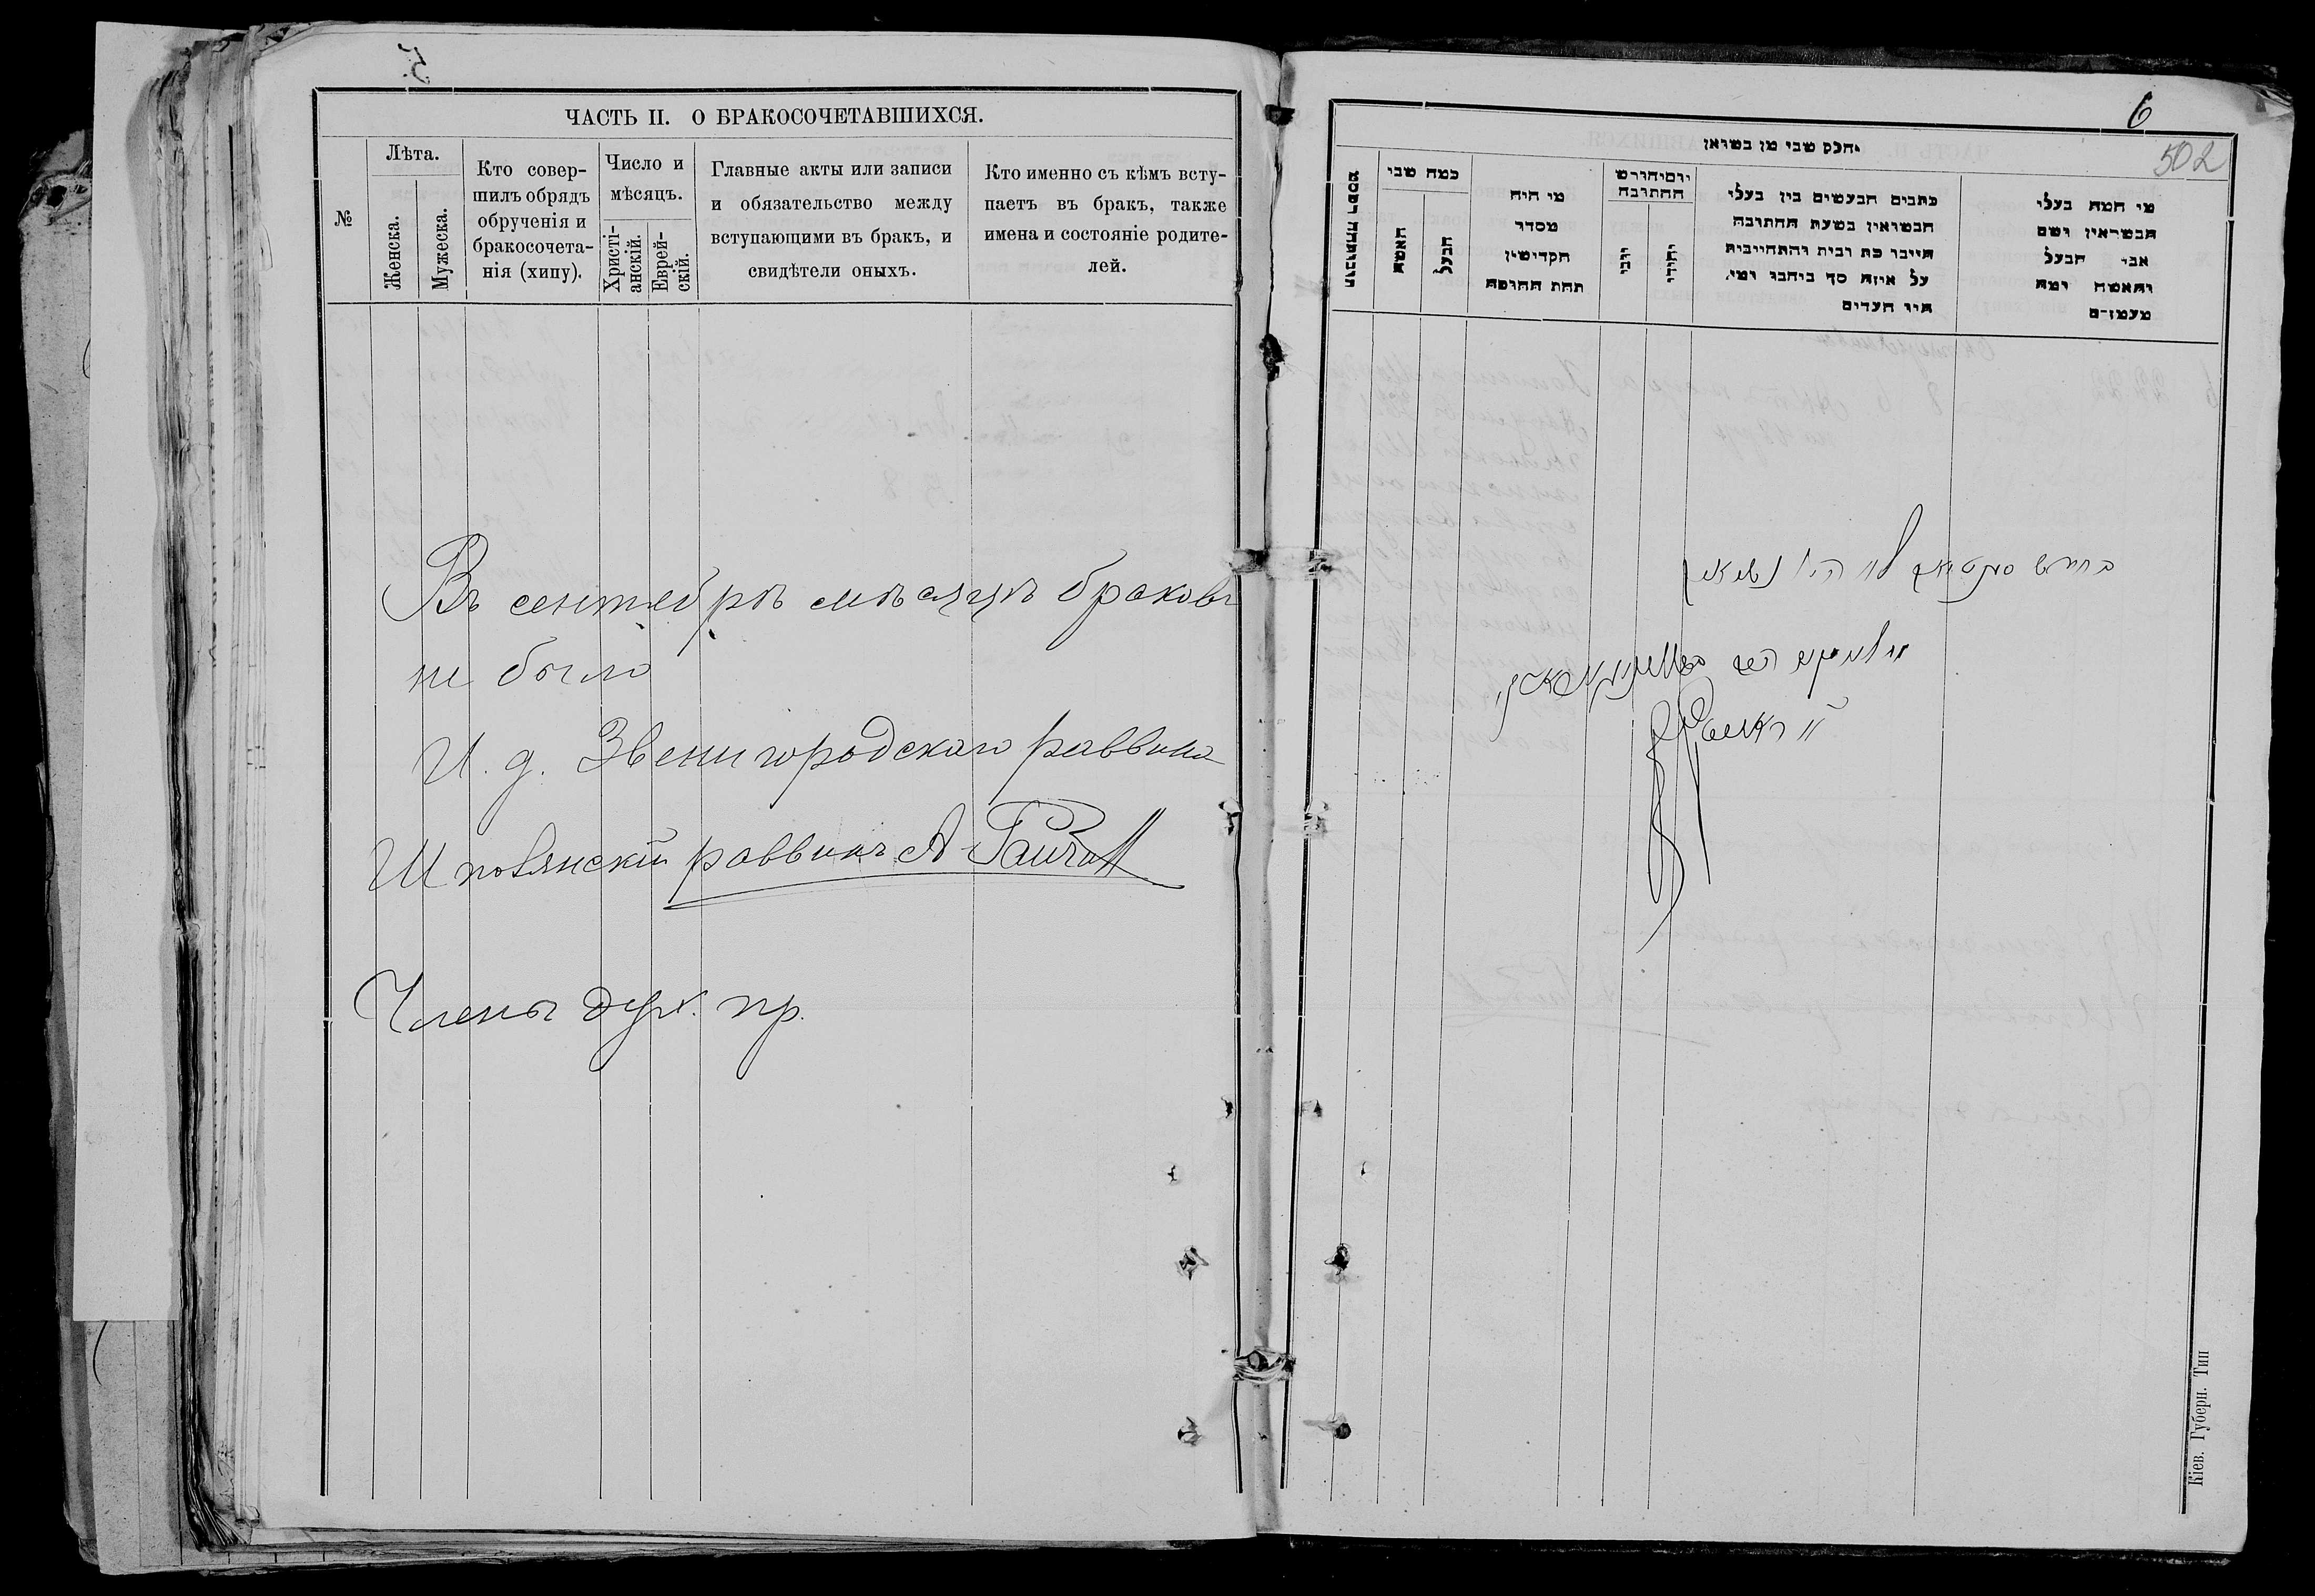 5.
ЧАСТЬ II. О БРАКОСОЧЕТАВШИХСЯ.
№
Лѣта.
Женска.
Мужеска.
Кто совер-
шилъ обрядъ
обрученія и
бракосочета-
нія (хипу).
Число и
мѣсяцъ.
Христі-
анскій.
Еврей-
скій.
Главные акты или записи
и обязательство между
вступающими въ бракъ, и
свидѣтели оныхъ.
Кто именно съ кѣмъ всту-
паетъ въ бракъ, также
имена и состояніе родите-
лей.
Въ сентябрѣ мѣсяцѣ браковъ
не было
И. д. Звенигородскаго раввина
Шполянскій раввинъ А
Члены дух. пр.
6
502
חלק שני מן נשואין
מי המה בעלי
הנשואין ושם
אבי הבעל
והאשה ומה
כתבים הנעשים בין בעלי
הנשואין בשעת החתונה
על איזה סך
היו העדים
החתונה
מי היה
מסדר
הקדושין
תחת החופה
כמה שני
הבעל
האשה
בחודש לא היו נשואין
Кіев. Губерн. Тип